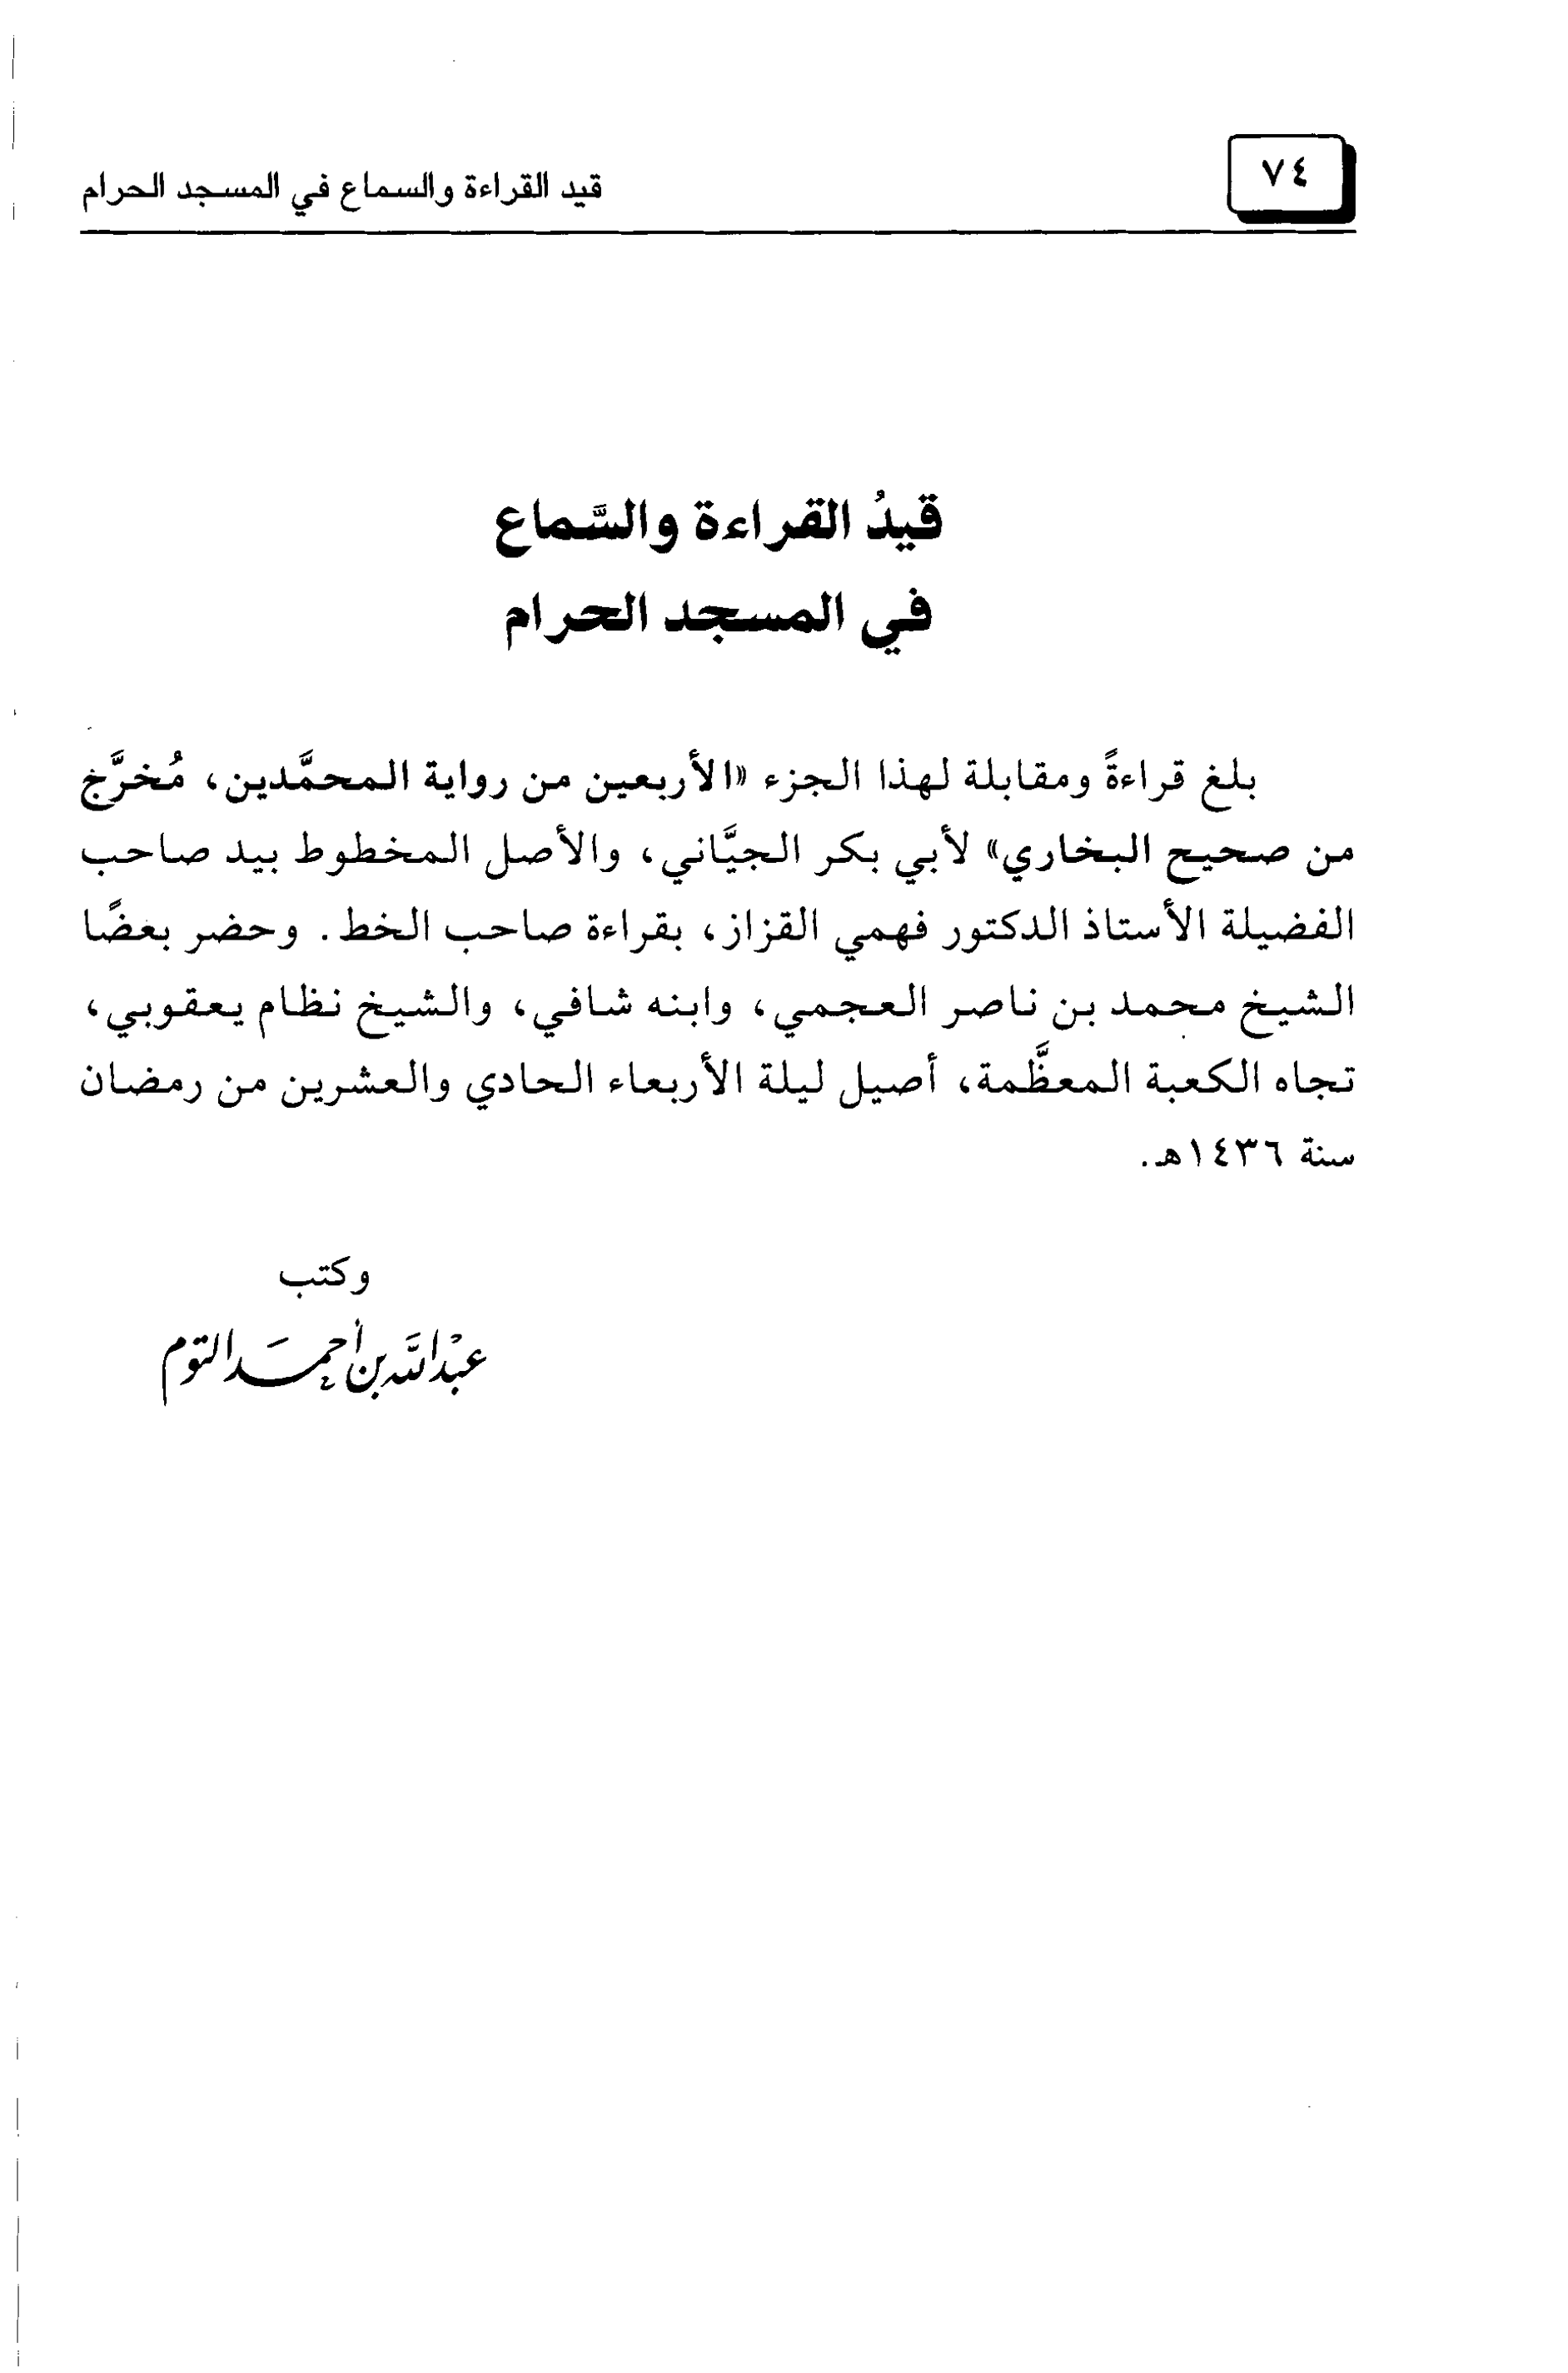 ٧٤
قيد القراءة والسماع في المسجد الحرام
قيدُ القراءة والسَّماع
في المسجد الحرام
بلغ قراءةً ومقابلة لهذا الجزء «الأربعين من رواية المحمَّدين، مُخرَّج
من صحيح البخاري» لأبي بكر الجيَّاني، والأصل المخطوط بيد صاحب
الفضيلة الأستاذ الدكتور فهمي القزاز، بقراءة صاحب الخط. وحضر بعضًا
الشيخ محمد بن ناصر العجمي، وابنه شافي، والشيخ نظام يعقوبي،
تجاه الكعبة المعظَّمة، أصيل ليلة الأربعاء الحادي والعشرين من رمضان
سنة ١٤٣٦هـ.
وكتب
عبْد اللَّه بن أحمَد التوم